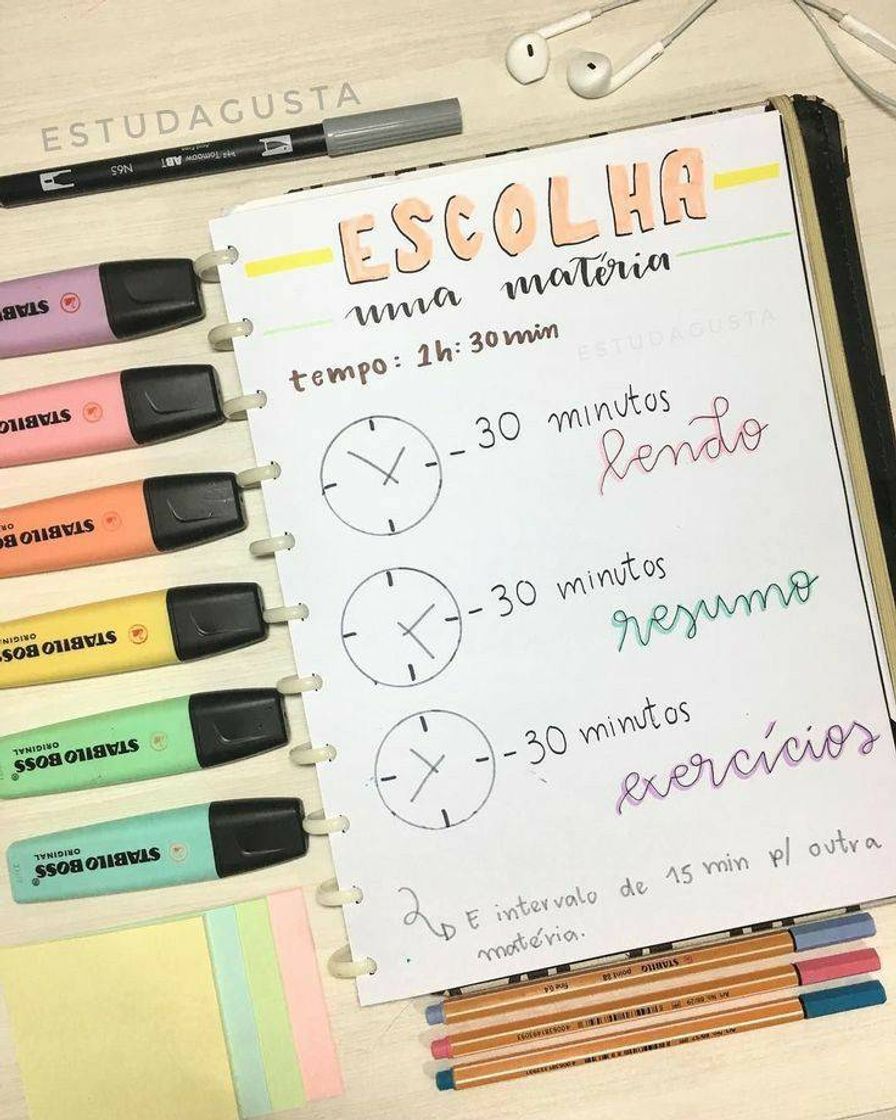 ESTUDAGUSTA
N65 Tombow ABT
ESCOLHA
uma matéria
tempo: 1h:30min
ESTUDAGUSTA
- 30 minutos
lendo
- 30 minutos
resumo
- 30 minutos
exercícios
E intervalo de 15 min p/ outra
matéria.
STABIL
STABILO
STABILO BO
OR
STABILO BOSS
ORIGIN
STABILO BOSS
ORIGINAL
STABILO BOSS
ORIGINAL
STABILO point 88 fine 0,4